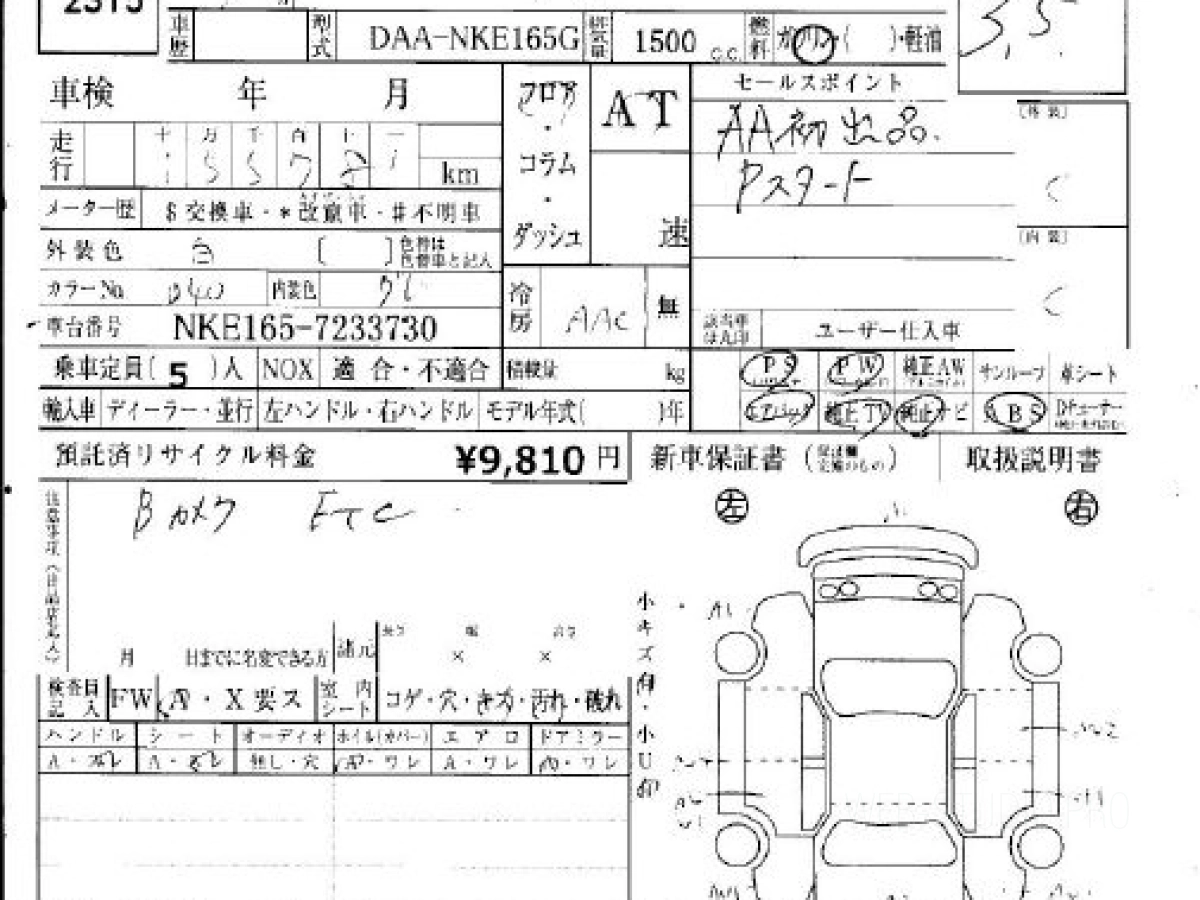 2315
車歴 型式 DAA-NKE165G 排気量 1500 c.c. 燃料 ガソリン( )・軽油
3.5
車検 年 月 フロア・コラム・ダッシュ AT 速
セールスポイント
AA初出品.
Pスタート
走行 十 万 千 百 十 一 km
1 5 5 7 2 1
メーター歴 $交換車・*改竄車・#不明車
外装色 白 [ ] 色替は色替車と記入
カラーNo. 040 内装色 グレ
冷房 AAC 無
車台番号 NKE165-7233730
[外装] C
[内装] C
該当車は丸印 ユーザー仕入車
乗車定員( 5 )人 NOX 適合・不適合 積載量 kg
PS PW 純正AW サンルーフ 革シート
輸入車 ディーラー・並行 左ハンドル・右ハンドル モデル年式( )年
エアバッグ 純正TV 純正ナビ ABS
預託済リサイクル料金 ¥9,810 円
新車保証書 取扱説明書
Bカメラ ETC
左 右
A1
小キズ有・小U有
月 日までに名変できる方 諸元 × ×
検査員記入 FW A・X要ス 室内シート コゲ・穴・キズ・汚れ・破れ
ハンドル シート オーディオ ホイル(カバー) エアロ ドアミラー
A・ズレ A・ズレ 無し・穴 A・ワレ A・ワレ A・ワレ